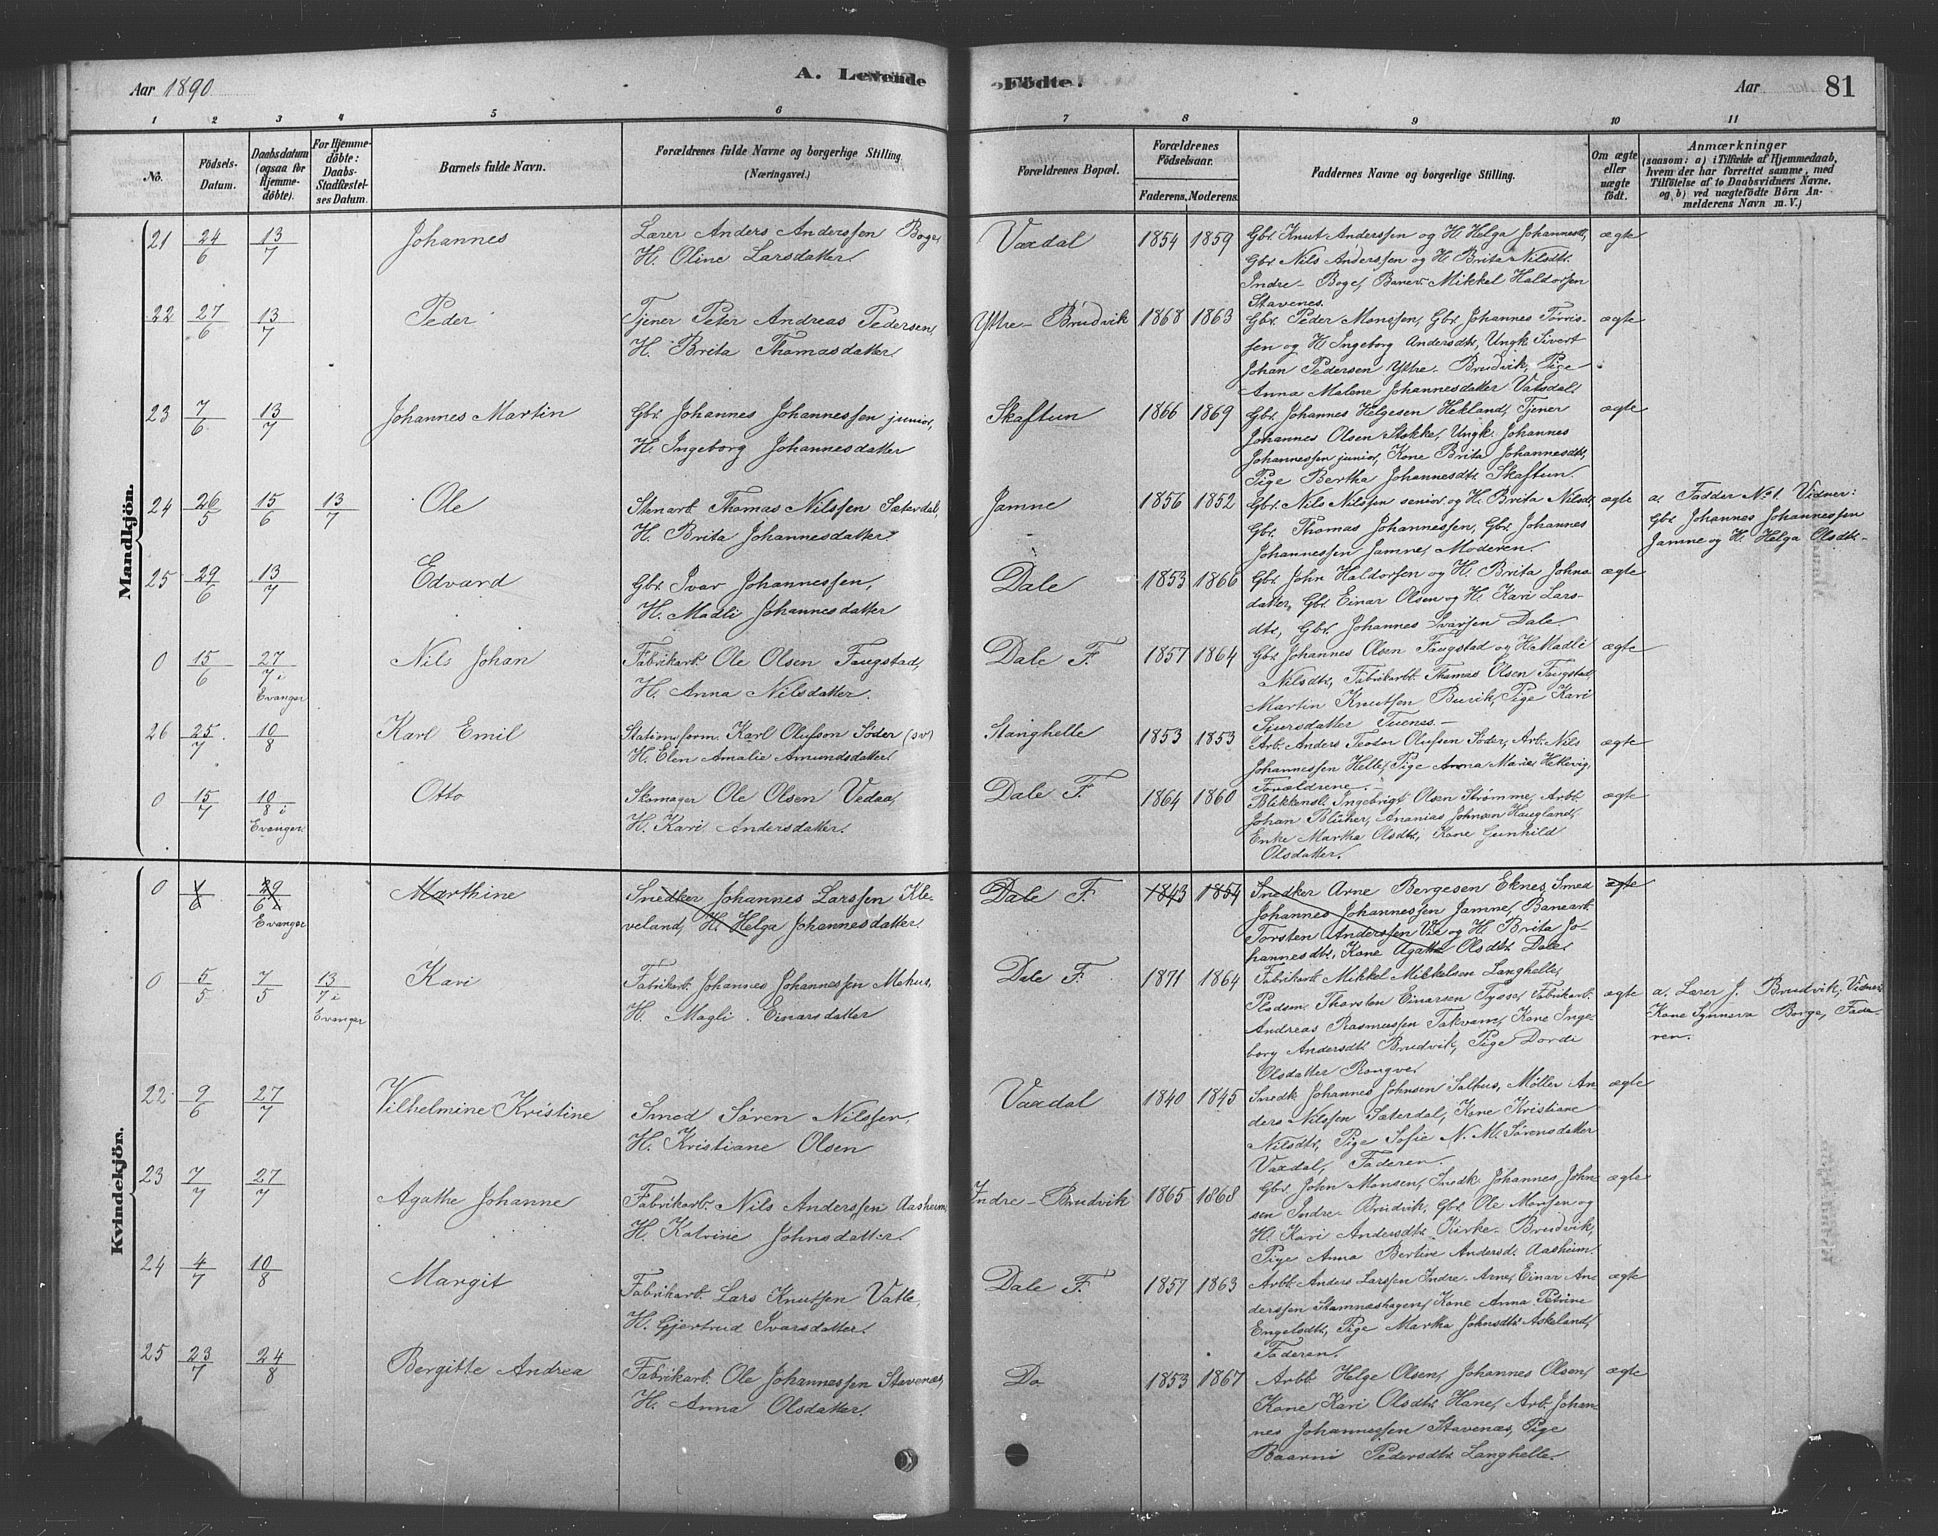 Aar 1890.
A. Levende
Födte.
Aar
81
1
2
3
4
5
6
7
8
9
10
11
No.
Födsels-
Datum.
Daabsdatum
(ogsaa for
Hjemme-
döbte).
For Hjemme-
döbte:
Daabs-
Stadfæstel-
ses Datum.
Barnets fulde Navn.
Forældrenes fulde Navne og borgerlige Stilling
(Næringsvei.)
Forældrenes Bopæl.
Forældrenes
Födselsaar.
Faderens.
Moderens.
Faddernes Navne og borgerlige Stilling.
Om ægte
eller
uægte
födt.
Anmærkninger
(saasom: a) i Tilfælde af Hjemmedaab,
hvem der har forrettet samme, med
Tilföielse af to Daabsvidners Navne.
og b) ved uægtefödte Börn An-
melderens Navn m. V.)
Mandkjön.
21 24/6 13/7 Johannes
Lærer Anders Anderssen Boge,
H. Oline Larsdatter.
Vaxdal 1854 1859
Gbr. Knut Anderssen og H. Helga Johannesdt,
Gbr. Nils Anderssen og H. Brita Nilsdtr.
Indre-Boge, Banev. Mikkel Haldorsen
Stavenes.
ægte
22 27/6 13/7 Peder
Tjener Peter Andreas Pedersen,
H. Brita Thomasdatter.
Yttre-Brudvik 1868 1863
Gbr. Peder Monssen, Gbr. Johannes Torris-
sen og H. Ingeborg Andersdtr, Ungk. Sivert
Johan Pedersen Yttre-Brudvik, Pige
Anna Malene Johannesdatter Vatsdal.
ægte
23 7/6 13/7 Johannes Martin
Gbr. Johannes Johannessen junior,
H. Ingeborg Johannesdatter
Skaftun 1866 1869
Gbr. Johannes Helgesen Hekland, Tjener
Johannes Olsen Stokke, Ungk. Johannes
Johannessen junior, Kone Brita Johannesdtr,
Pige Bertha Johannesdtr. Skaftun
ægte
24 26/5 15/6 13/7 Ole
Stenarb. Thomas Nilssen Sæterdal,
H. Brita Johannesdatter.
Jamne 1856 1852
Gbr. Nils Nilssen senior og H. Brita Nilsdt,
Gbr. Thomas Johannessen, Gbr. Johannes
Johannessen Jamne, Moderen.
ægte
a. Fadder No 1. Vidner:
Gbr. Johannes Johannessen
Jamne og H. Helga Olsdtr.
25 29/6 13/7 Edvard
Gbr. Ivar Johannessen,
H. Madli Johannesdatter
Dale 1853 1866
Gbr. John Haldorsen og H. Brita Johns-
datter, Gbr. Einar Olsen og H. Kari Lars-
dtr, Gbr. Johannes Ivarsen Dale.
ægte
0 15/6 27/7 i Evanger Nils Johan
Fabrikarb. Ole Olsen Faugstad,
H. Anna Nilsdatter.
Dale F. 1857 1864
Gbr. Johannes Olsen Faugstad og H. Madli
Nilsdtr, Fabrikarbb. Thomas Olsen Faugstad
Martin Knutsen Burik, Pige Kari
Sjursdatter Tuenes.
ægte
26 25/7 10/8 Karl Emil
Stationsform. Karl Olufson Söder (sv)
H. Elen Amalie Amundsdatter.
Stanghelle 1853 1853
Arb. Anders Teodor Olufsen Söder, Arb. Nils
Johannessen Helle, Pige Anna Marie Hekevig,
Forældrene.
ægte
0 15/7 10/8 i Evanger. Otto
Skomager Ole Olsen Vedaa,
H. Kari Andersdatter.
Dale F. 1864 1860
Blikkensl. Ingebrigt Olsen Strømme, Arbb.
Johan Blücher, Ananias Johnsen Haugland,
Enke Martha Olsdtr, Kone Gunhild
Olsdatter.
ægte
Kvindekjön.
0 1/6 29/6 i Evanger Marthine
Snedker Johannes Larssen Kle-
veland, H. Helga Johannesdatter.
Dale F. 1843 1854
Snedker Arne Bergesen Eknes, Smed
Johannes Johannessen Jamne, Banearb.
Torsten Anderssen Vie og H. Brita Jo-
hannesdtr, Kone Agatha Olsdtr. Dale
ægte
0 5/5 7/5 13/7 i Evanger Kari
Fabrikarb. Johannes Johannessen Mehus,
H. Magli Einarsdatter
Dale F. 1871 1864
Fabrikarb. Mikkel Mikkelsen Langhelle,
Pladsm. Thorsten Einarsen Tysse, Fabrikarb.
Andreas Rasmussen Takvam, Kone Inge-
borg Andersdtr. Brudvik, Pige Dordi
Olsdatter Rongve.
ægte
a. Lærer J. Brudvik, Vidner:
Kone Synneva Borge, Fade-
ren.
22 9/6 27/7 Vilhelmine Kristine
Smed Søren Nilssen,
H. Kristiane Olsen
Vaxdal 1840 1845
Snedk. Johannes Johnsen Salhus, Møller An-
ders Nilssen Sæterdal, Kone Kristiane
Nilsdtr, Pige Sofie N. M. Sørensdatter
Vaxdal, Faderen.
ægte
23 7/7 27/7 Agathe Johanne
Fabrikarb. Nils Anderssen Aasheim,
H. Katrine Johnsdatter.
Indre-Brudvik 1865 1868
Gbr. John Monsen, Snedk. Johannes John-
sen Indre-Brudvik, Gbr. Ole Monsen og
H. Kari Andersdtr. Kirke-Brudvik,
Pige Anna Bertine Andersd. Aasheim.
ægte
24 4/7 10/8 Margit
Fabrikarb. Lars Knutsen Vatle,
H. Gjertrud Ivarsdatter.
Dale F. 1857 1863
Arbb. Anders Larssen Indre-Arne, Einar An-
derssen Stamneshagen, Kone Anna Petrine
Engelsdtr, Pige Martha Johnsdtr. Askeland,
Faderen.
ægte
25 23/7 24/8 Bergitte Andrea
Fabrikarb. Ole Johannessen Stavenæs,
H. Anna Olsdatter.
Do 1853 1867
Arbb. Helge Olsen, Johannes Olsen,
Kone Kari Olsdtr. Hane, Arb. Johan-
nes Johannessen Stavenæs, Pige
Baarni Pedersdtr. Langhelle.
ægte